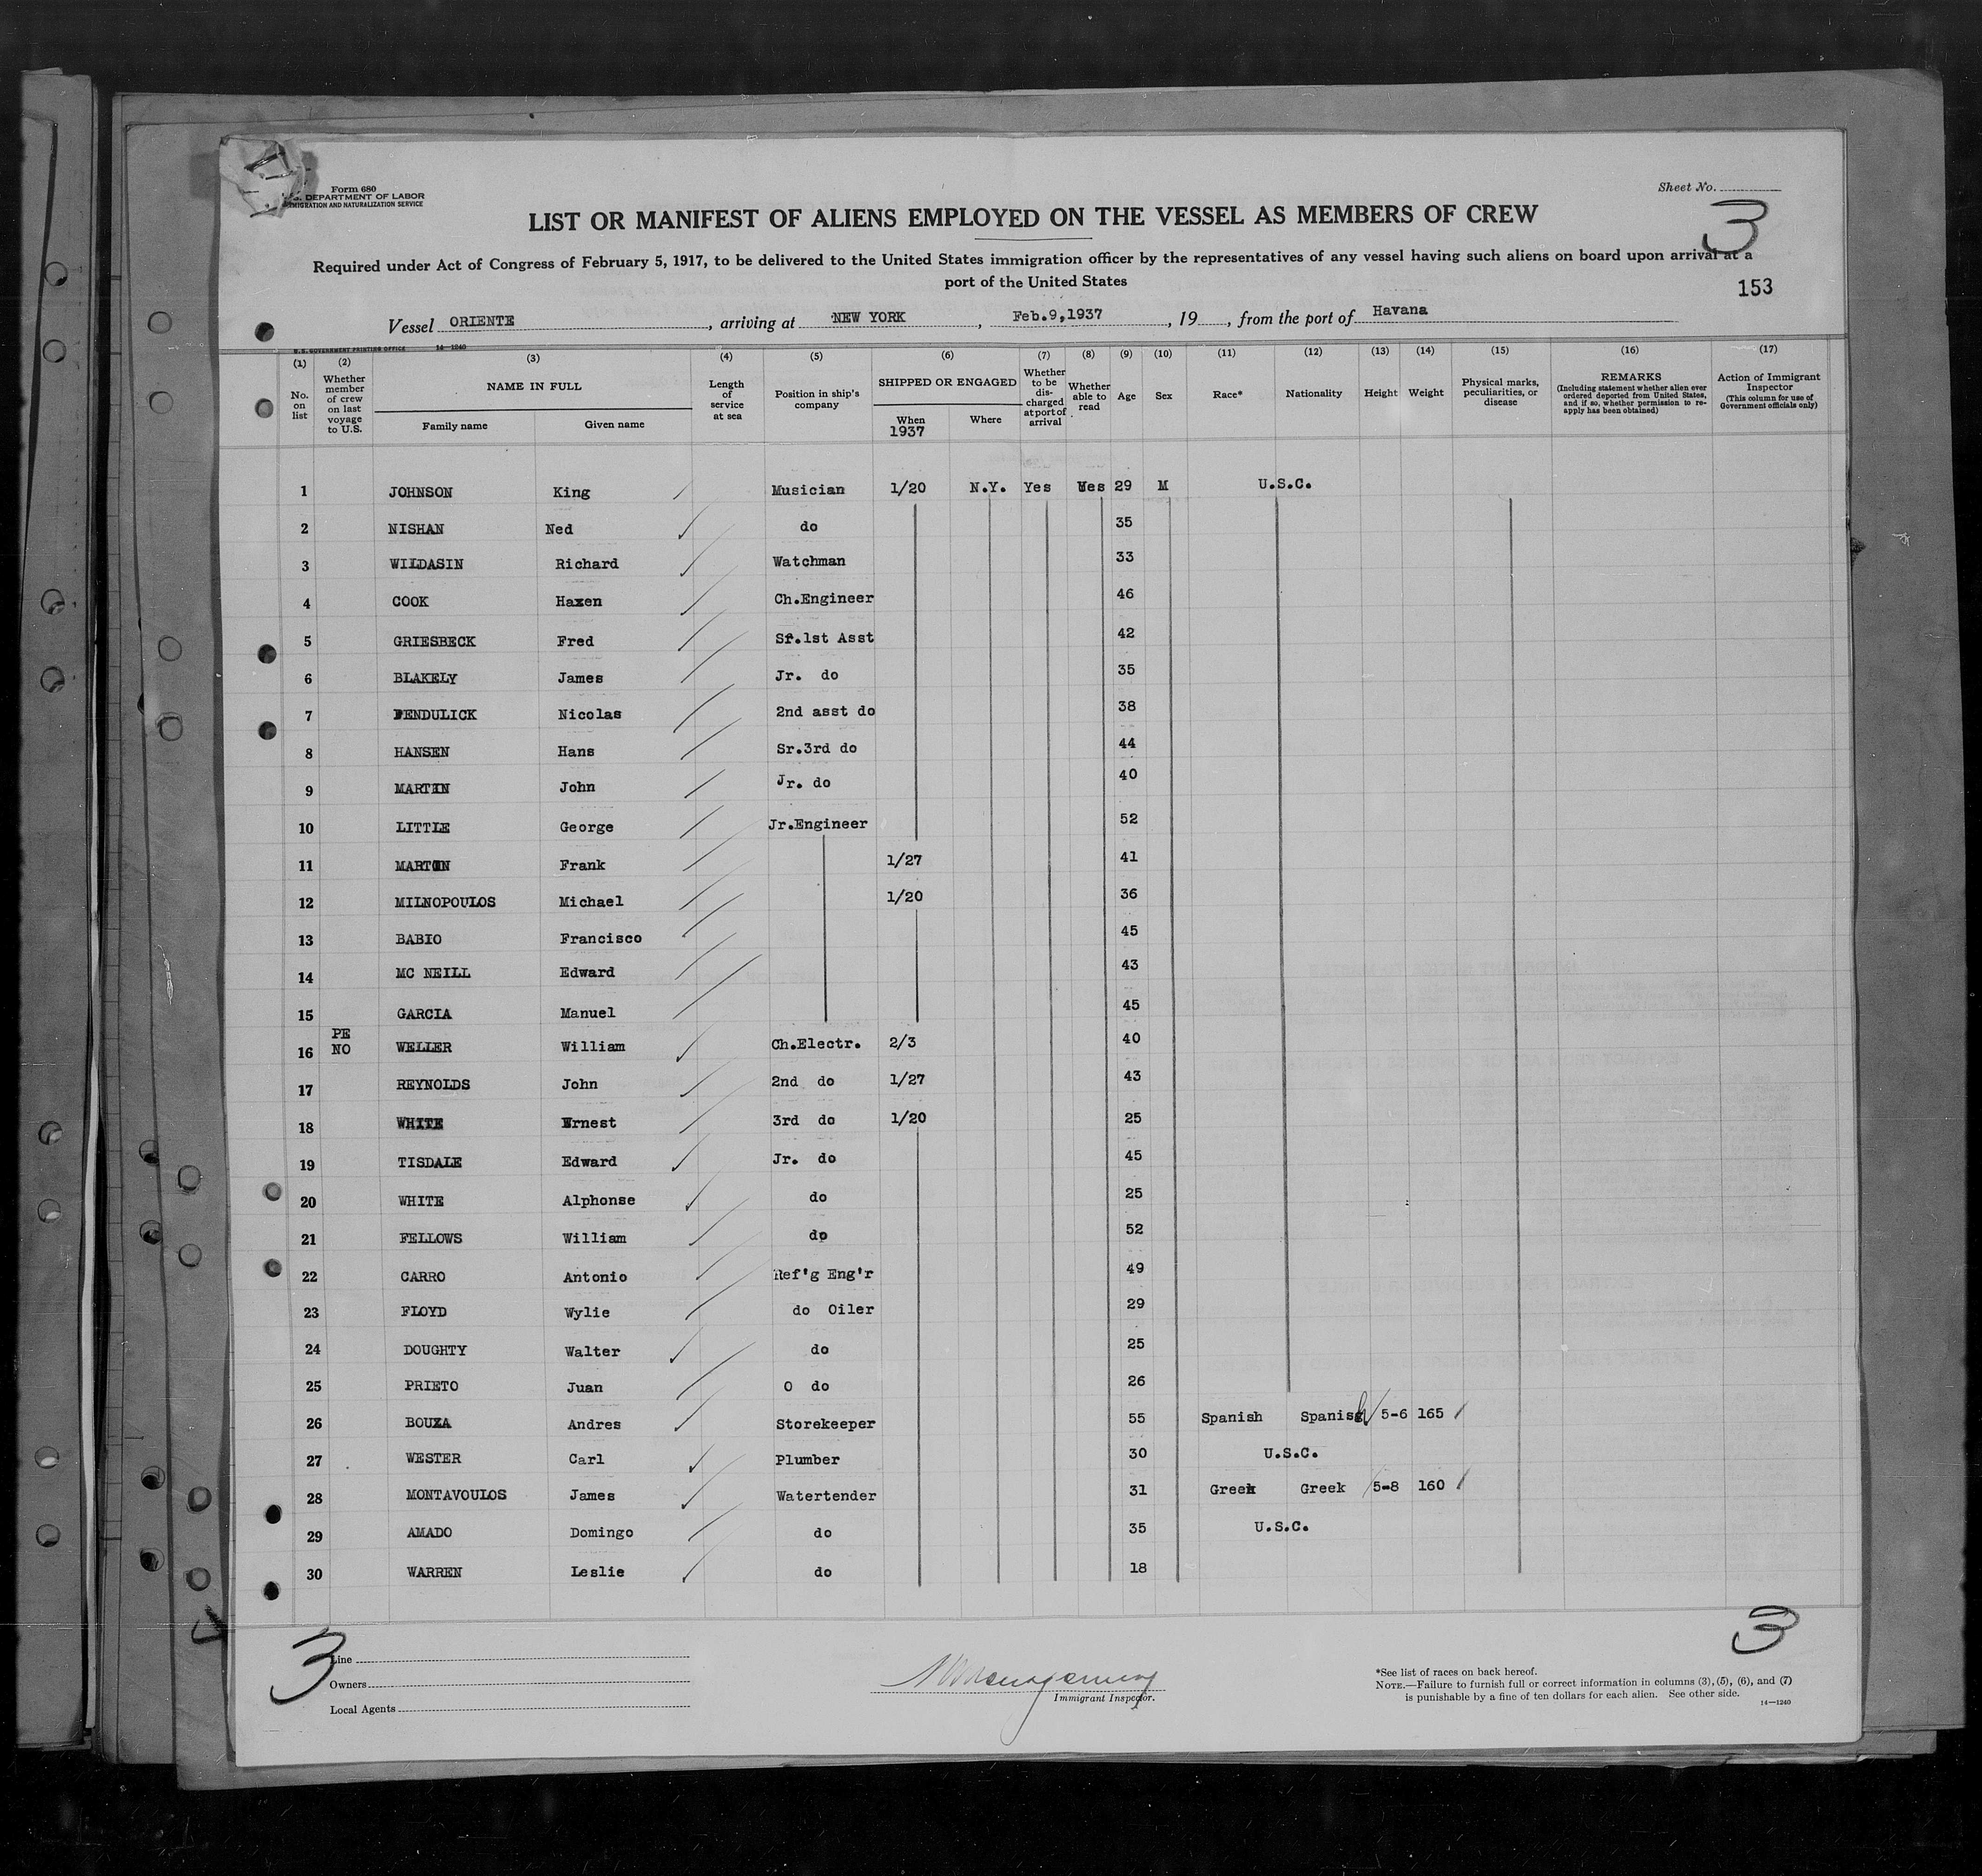 Form 680
U.S. DEPARTMENT OF LABOR
IMMIGRATION AND NATURALIZATION SERVICE
Sheet No.
3
LIST OR MANIFEST OF ALIENS EMPLOYED ON THE VESSEL AS MEMBERS OF CREW
Required under Act of Congress of February 5, 1917, to be delivered to the United States immigration officer by the representatives of any vessel having such aliens on board upon arrival at a
port of the United States
153
Vessel ORIENTE, arriving at NEW YORK, Feb.9,1937, 19, from the port of Havana
U.S. GOVERNMENT PRINTING OFFICE 14—1240
(1) (2) (3) (4) (5) (6) (7) (8) (9) (10) (11) (12) (13) (14) (15) (16) (17)
No. on list
Whether member of crew on last voyage to U.S.
NAME IN FULL
Family name Given name
Length of service at sea
Position in ship's company
SHIPPED OR ENGAGED
When Where
1937
Whether to be discharged at port of arrival
Whether able to read
Age Sex Race* Nationality Height Weight
Physical marks, peculiarities, or disease
REMARKS
(Including statement whether alien ever ordered deported from United States, and if so, whether permission to reapply has been obtained)
Action of Immigrant Inspector
(This column for use of Government officials only)
1 JOHNSON King Musician 1/20 N.Y. Yes Yes 29 M U.S.C.
2 NISHAN Ned do 35
3 WILDASIN Richard Watchman 33
4 COOK Haxen Ch.Engineer 46
5 GRIESBECK Fred Sr.1st Asst 42
6 BLAKELY James Jr. do 35
7 PENDULICK Nicolas 2nd asst do 38
8 HANSEN Hans Sr.3rd do 44
9 MARTIN John Jr. do 40
10 LITTLE George Jr.Engineer 52
11 MARTIN Frank 1/27 41
12 MILNOPOULOS Michael 1/20 36
13 BABIO Francisco 45
14 MC NEILL Edward 43
15 GARCIA Manuel 45
16 PE NO WELLER William Ch.Electr. 2/3 40
17 REYNOLDS John 2nd do 1/27 43
18 WHITE Ernest 3rd do 1/20 25
19 TISDALE Edward Jr. do 45
20 WHITE Alphonse do 25
21 FELLOWS William do 52
22 CARRO Antonio Ref'g Eng'r 49
23 FLOYD Wylie do Oiler 29
24 DOUGHTY Walter do 25
25 PRIETO Juan O do 26
26 BOUZA Andres Storekeeper 55 Spanish Spanish 5-6 165
27 WESTER Carl Plumber 30 U.S.C.
28 MONTAVOULOS James Watertender 31 Greek Greek 5-8 160
29 AMADO Domingo do 35 U.S.C.
30 WARREN Leslie do 18
3
3
Line
Owners
Local Agents
Immigrant Inspector.
*See list of races on back hereof.
NOTE.—Failure to furnish full or correct information in columns (3), (5), (6), and (7)
is punishable by a fine of ten dollars for each alien. See other side.
14—1240